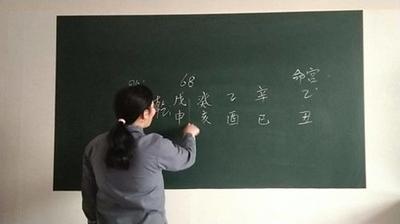 68 命宫
乾 戊 癸 乙 辛 乙
申 亥 酉 巳 丑